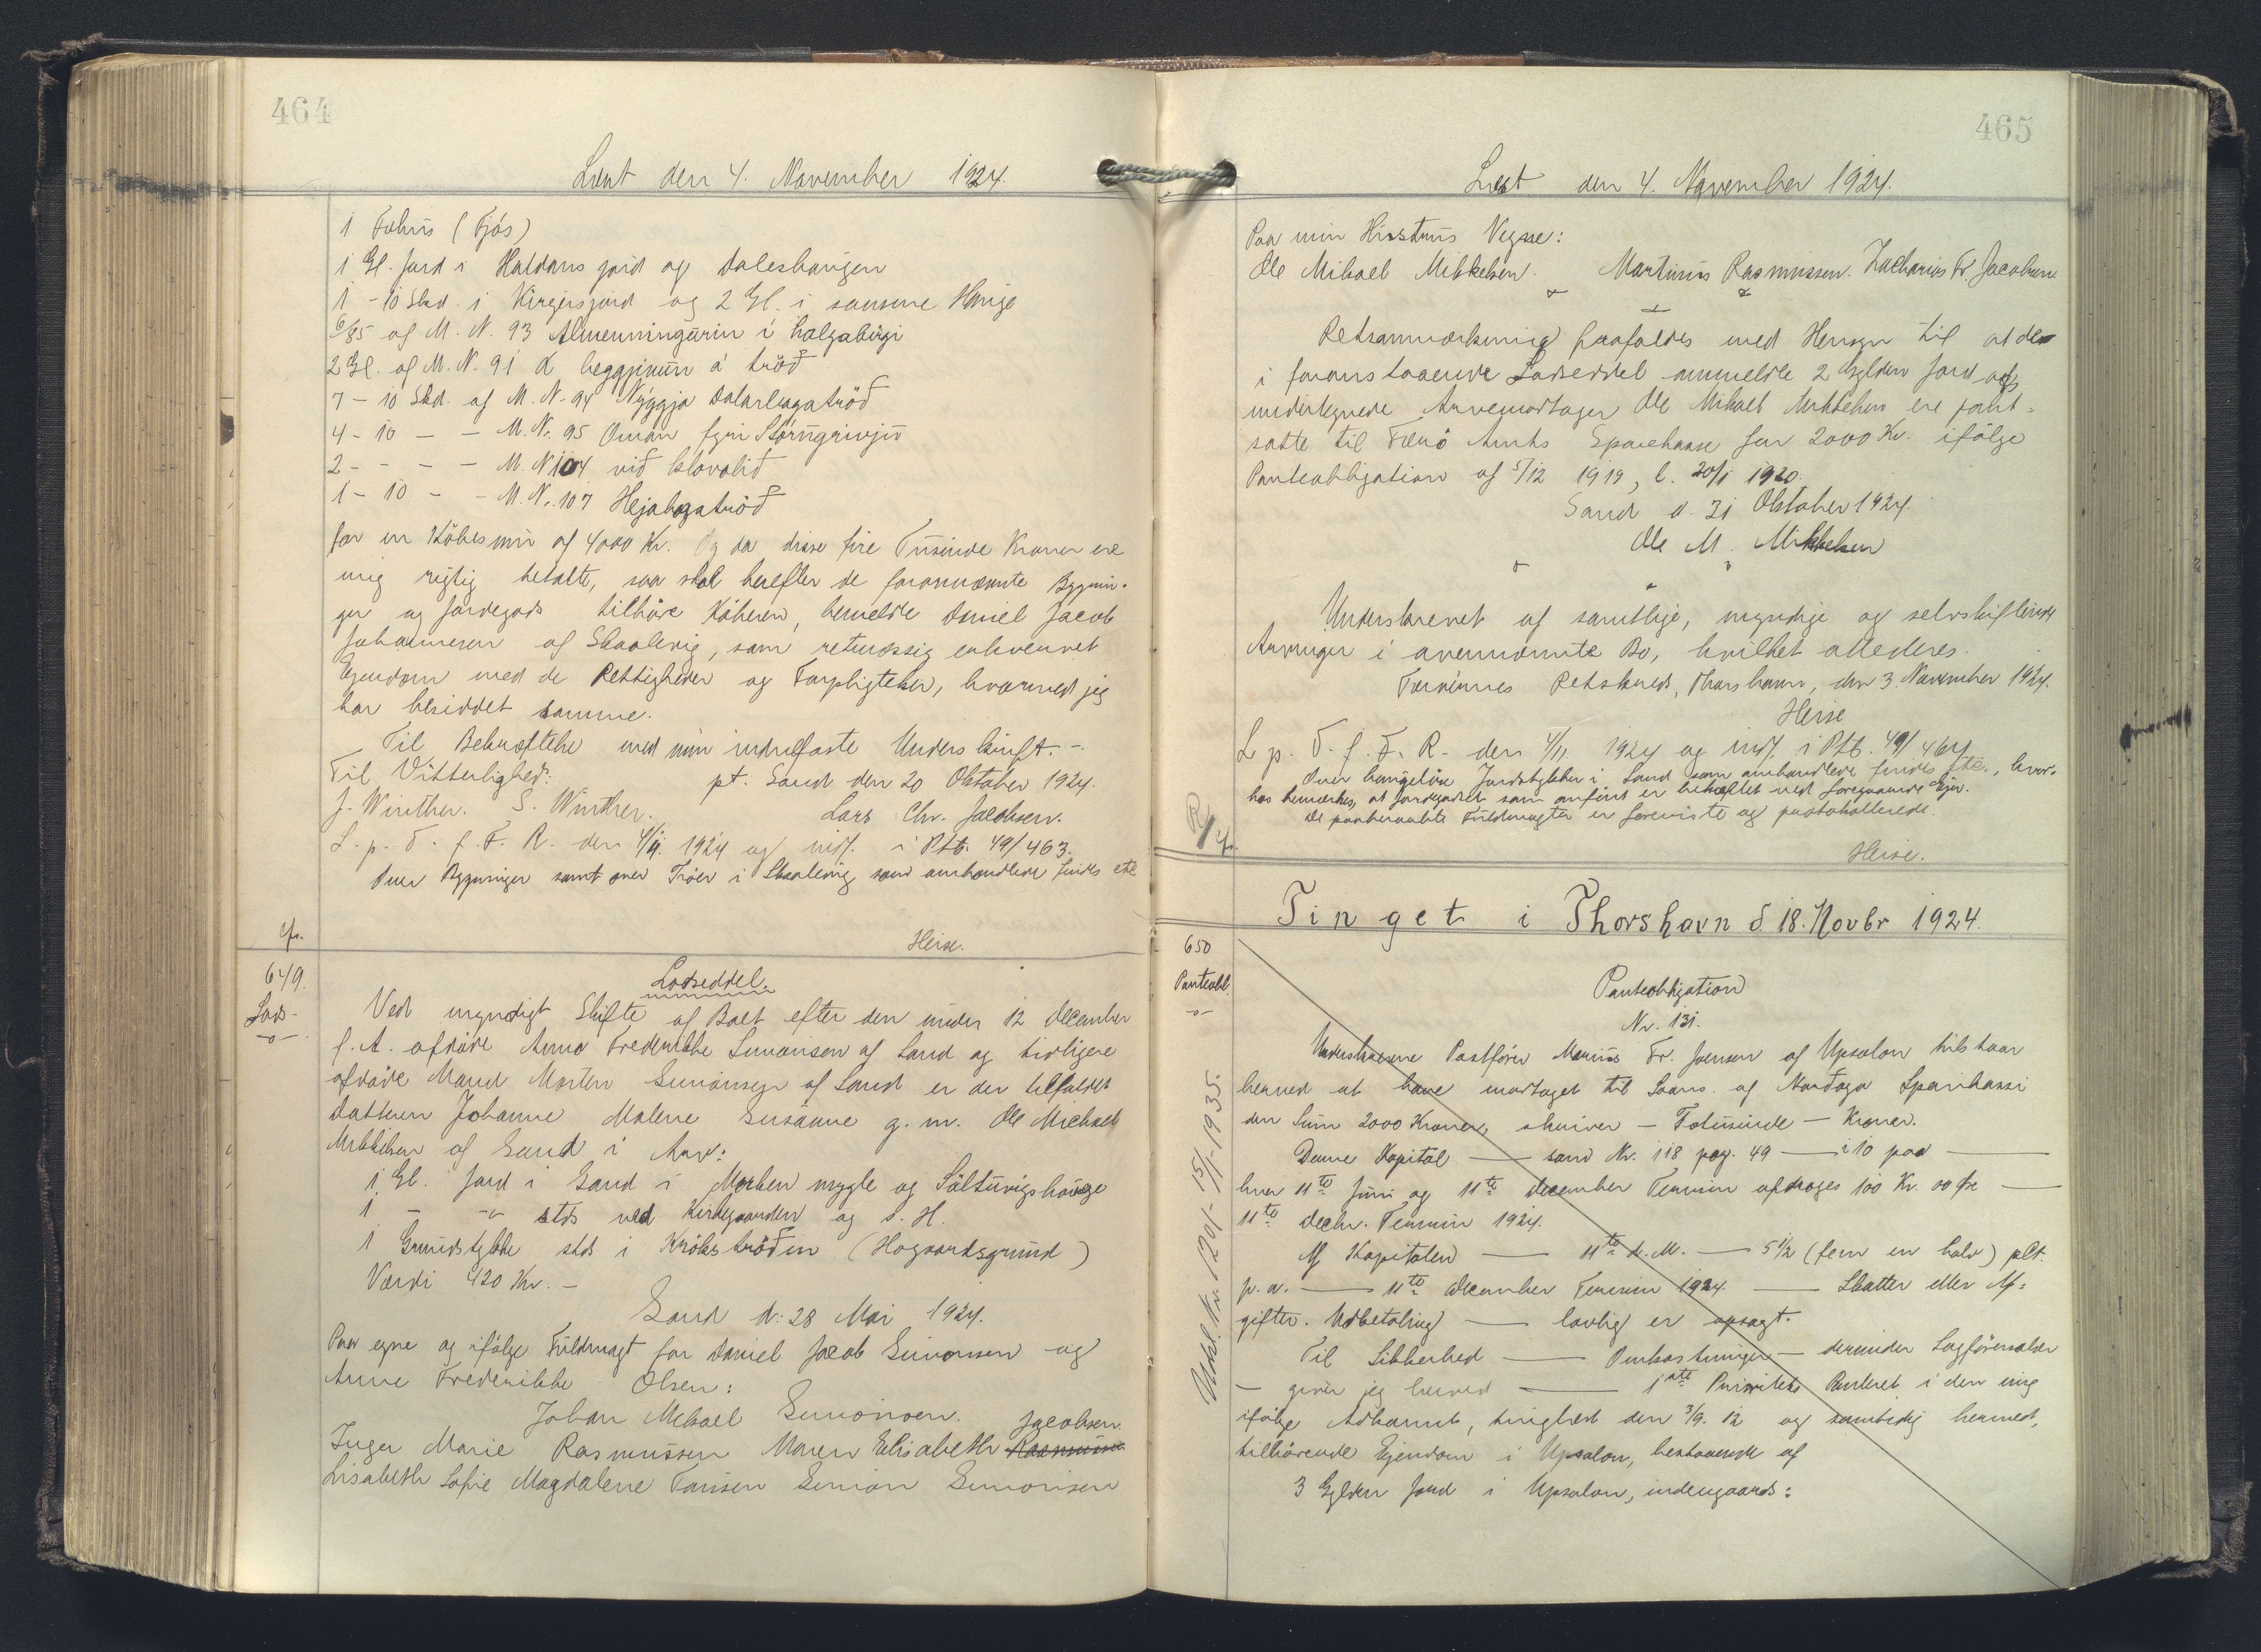 464
Læst den 4. November 1924.
1 Fæhus (Fjós)
1 Gl. Jord i Haldans gjord og Daleshaugen
1 - 10 Skd. i Kirgersgjord og 2 Gl. i samme Hauge
6/85 af M. N. 93 Almenningurin í
2 Gl. af M. N. 91 d heygginum á tröð
7 - 10 Skd. af M. N. 94 Nýggja Dalarlagatröð
4 - 10 - - M. N. 95 Oman fyri Stórugrivju
2 - - - - M. N 104 við
1 - 10 - - M. N. 107 Hejalagatröð
for en Købesum af 4000 Kr. Og da disse fire Tusinde Kroner ere
mig rigtig betalte, saa skal herefter de forannævnte Bygnin-
ger og Jordegods tilhøre Køberen, bemeldte Daniel Jacob
Johannesen af Skaalevig, som retmæssig erhvervet
Ejendom med de Rettigheder og Forpligtelser, hvormed jeg
har besiddet samme.
Til Bekræftelse med min underfaste Underskrift. -
Til Vitterlighed: pt. Sand den 20 Oktober 1924.
J. Winther. S. Winther. Lars Chr. Jacobsen.
L. p. T. f. F. R. den 4/11. 1924 og indf. i Ptb. 49/463.
Over Bygninger samt over Trøer i Skaalevig som omhandlede findes etc
Heise.
649.
Lods-
-o-
Lodseddel.
Ved myndigt Skifte af Boet efter den under 12 December
f. A. afdøde Anna Frederikke Simonsen af Sand og tidligere
afdøde Mand Morten Simonsen af Sand er der tilfaldet
Datteren Johanne Malene Susanne g. m. Ole Michael
Mikkelsen af Sand i Arv:
1 Gl. Jord i Sand i Morken mygle og Søltuvigshauge
1 - -"- stds ved Kirkegaarden og s. H.
1 Grundstykke stds i Krókströðin (Hogaardsgrund)
Værdi 420 Kr. -
Sand d. 28 Mai 1924.
Paa egne og ifølge Fuldmagt for Daniel Jacob Simonsen og
Anne Frederikke Olsen:
Johan Mikael Simonsen. Jacobsen
Inger Marie Rasmussen Maren Elisabeth Rasmussen
Lisabeth Sofie Magdalene Simon Simonsen
465
Læst den 4. November 1924.
Paa min Hustrus Vegne:
Ole Mikael Mikkelsen. Martinus Rasmussen. Zacharias Fr. Jacobsen
Retsanmærkning frafaldes med Hensyn til at de
i foranstaaende Lodseddel anmeldte 2 Gylden Jord af
undertegnede Arvemodtager Ole Mikael Mikkelsen ere pant-
satte til Færø Amts Sparekasse for 2000 Kr. ifølge
Panteobligation af 5/12 1919, l. 20/1 1920.
Sand d. 31 Oktober 1924.
Ole M. Mikkelsen
Underskrevet af samtlige, myndige og selvskiftende
Arvinger i ovennævnte Bo, hvilket attesteres.
Færøernes Retskreds, Thorshavn, den 3. November 1924.
Heise
L p. T. f. F. R. den 4/11 1924 og indf. i Ptb. 49/464
Over haugeløse Jordstykker i Sand som omhandlede findes etc., hvor-
hos bemærkes, at Jordegodset som anført er behæftet ved foregaaende Ejer.
De paaberaabte Fuldmagter er foreviste og protokollerede.
Heise.
Tinget i Thorshavn d. 18. Novbr 1924.
650
Panteobl.
-o-
Panteobligation
Nr. 131.
Underskrevne Postfører Marius Fr. Joensen af Upsalon tilstaar
herved at have modtaget til Laans af Norðoya Sparikassi
den Sum 2000 Kroner, skriver - Totusinde - Kroner.
Denne Kapital — som Nr. 118 pag. 49 — i 10 paa —
hver 11te Juni og 11te December Termin afdrages 100 Kr. 00 Øre —
11te Decbr. Termin 1924.
Af Kapitalen — 11te d. M. — 5 1/2 (fem en halv) pCt.
p. a. — 11te December Termin 1924. — Skatter eller Af-
gifter. Udbetaling — lovlig er opsagt.
Til Sikkerhed — Omkostninger — derunder Sagførersalær
- giver jeg herved — 1ste Prioritets Panteret i den mig
ifølge Adkomst, tinglæst den 3/9. 12 og samtidig hermed,
tilhørende Ejendom i Upsalon, bestaaende af
3 Gylden Jord i Upsalon, indengaards:
Udsl. Nr. 1201 - 15/1-1935.